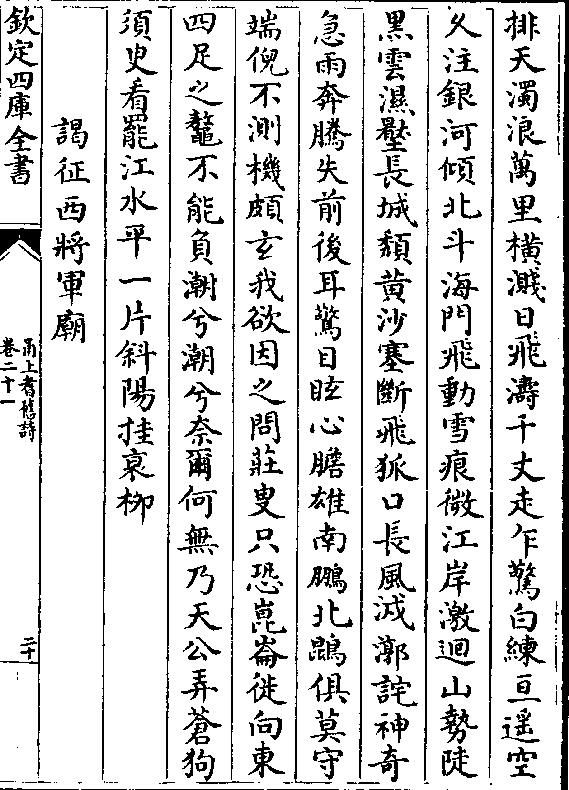 排天濁浪萬里橫濺日飛濤千丈走乍驚白練亘遥空
乆注銀河傾北斗海門飛動雪痕微江岸激迴山勢陡
黒雲濕壓長城頽黄沙塞斷飛狐口長風泧漷詫神竒
急雨奔騰失前後耳驚目眩心膽雄南鵬北鵾俱莫守
端倪不測機頗玄我欲因之問莊叟只恐崑崙徙向東
四足之鼇不能負潮兮潮兮奈爾何無乃天公弄蒼狗
須臾看罷江水平一片斜陽挂衰柳
謁征西將軍廟
欽定四庫全書
甬上耆舊詩
卷二十一
二十